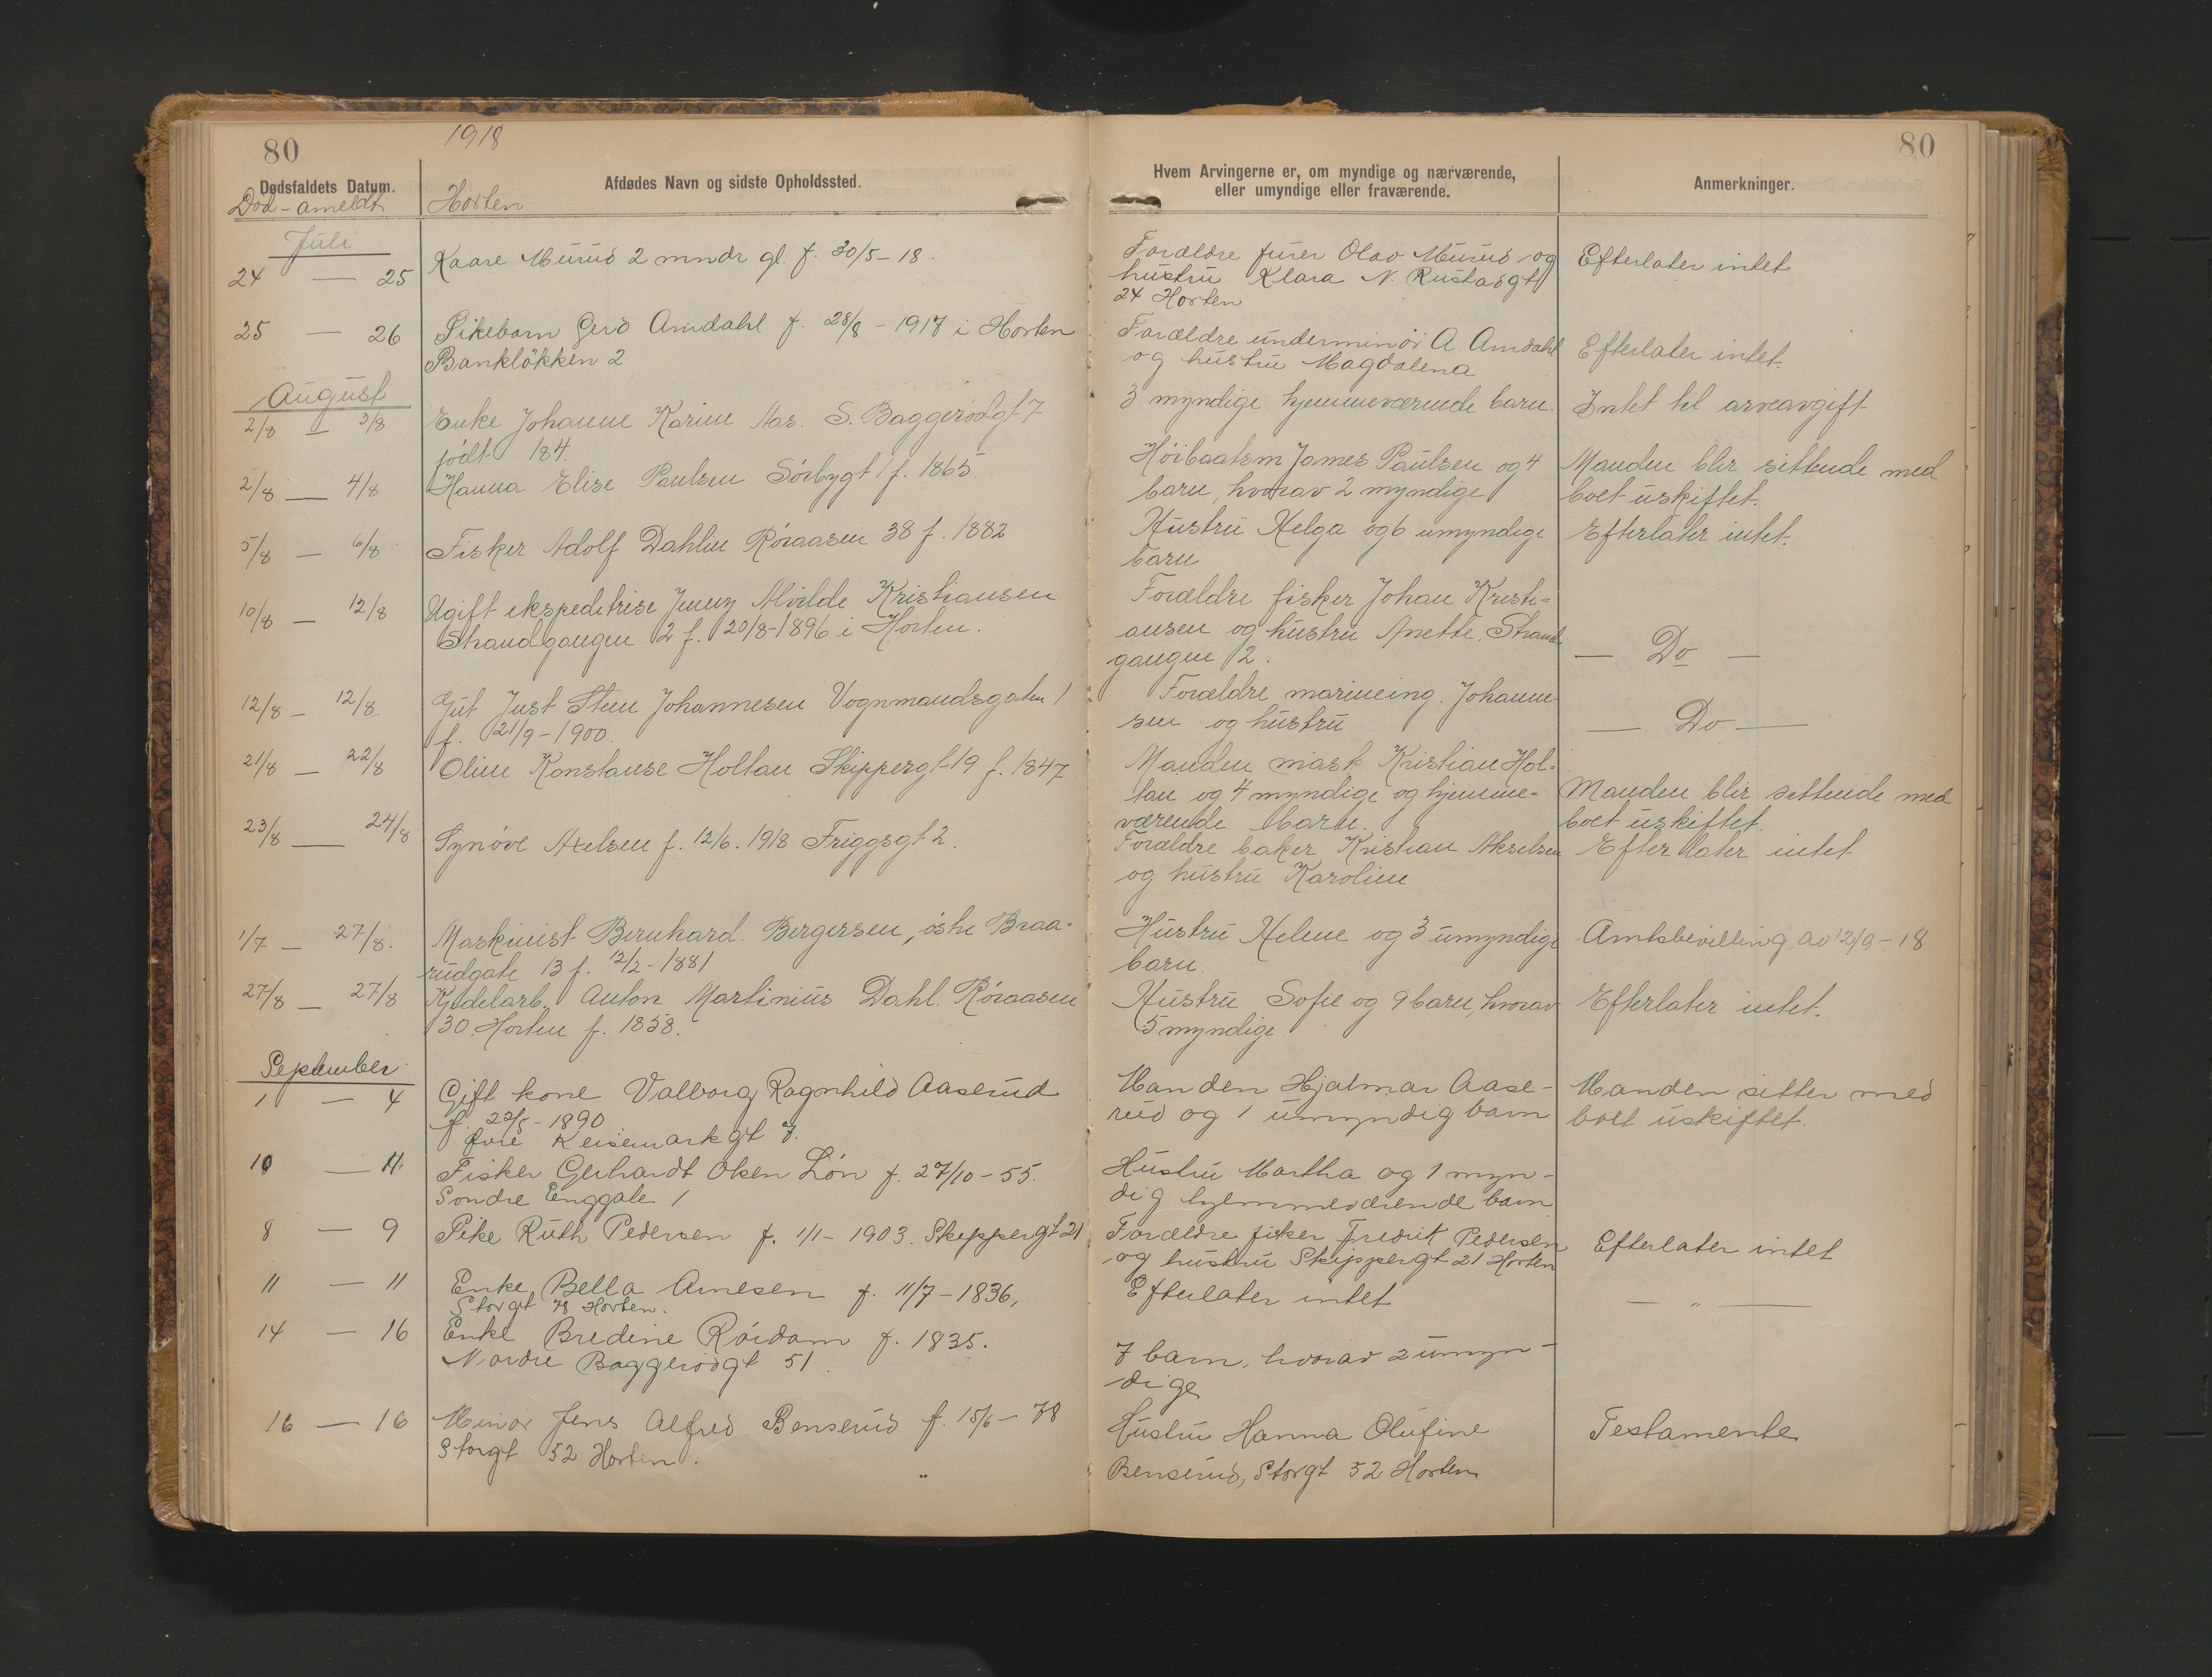 80
1918
80
Dødsfaldets Datum.
Afdødes Navn og sidste Opholdssted.
Hvem Arvingerne er, om myndige og nærværende,
eller umyndige eller fraværende.
Anmerkninger.
Död - ameldt
Horten
Juli
24 — 25
Kaare Murud 2 mndr gl. f. 30/5 - 18.
Forældre furer Olav Murud og
hustru Klara N. Rustadgt
24 Horten
Efterlater intet
25 — 26
Pikebarn Gerd Amdahl f. 28/8 - 1917 i Horten
Banklökken 2
Forældre underminör A. Amdahl
og hustru Magdalena
Efterlater intet.
August
2/8 — 3/8
Enke Johanne Karine Aas. S. Baggerødgt 7
født 184.
3 myndige hjemmeværende barn.
Intet til arveavgift
2/8 — 4/8
Hanna Elise Paulsen Sörbygt 1 f. 1865
Høibaatsm James Paulsen og 4
barn, hvorav 2 myndige
Manden blir sittende med
boet uskiftet.
5/8 — 6/8
Fisker Adolf Dahlin Røraasen 38 f. 1882
Hustru Helga og 6 umyndige
barn
Efterlater intet.
10/8 — 12/8
Ugift ekspeditrise Jenny Alvilde Kristiansen
Strandgangen 2 f. 20/8-1896 i Horten.
Forældre fisker Johan Kristi-
ansen og hustru Anette. Strand
gangen 2.
— Do —
12/8 — 12/8.
Gut Just Steen Johannesen Vognmandsgaten 1
f. 21/9 - 1900.
Forældre marineing. Johanne-
sen og hustru
— Do —
21/8 — 22/8
Oline Konstanse Holtan Skippergt 19 f. 1847
Manden mask Kristian Hol-
tan og 4 myndige og hjemme-
værende barn.
Manden blir sittende med
boet uskiftet.
23/8 — 24/8
Synöve Axelsen f. 12/6. 1918 Friggsgt 2.
Forældre baker Kristian Akselsen
og hustru Karoline
Efterlater intet
1/7 — 27/8.
Maskinist Bernhard Bergersen, östre Braa-
rudgate 13 f. 12/2 - 1881
Hustru Helene og 3 umyndige
barn.
Amtsbevilling av 12/9 - 18
27/8 — 27/8
Kjedelarb. Anton Martinius Dahl Røraasen
30. Horten f. 1858.
Hustru Sofie og 9 barn, hvorav
5 myndige
Efterlater intet.
September
1 — 4
Gift kone Valborg Ragnhild Aaserud
f. 22/5 - 1890
övre Keisemarkgt 7.
Manden Hjalmar Aase-
rud og 1 umyndig barn
Manden sitter med
boet uskiftet.
10 — 11
Fisker Gerhardt Olsen Lön f. 27/10 - 55.
Sondre Enggate 1
Hustru Martha og 1 myn-
dig hjemmeværende barn
8 — 9
Pike Ruth Pedersen f. 1/1 - 1903. Skippergt 21
Forældre fisker Fredrik Pedersen
og hustru Skippergt 21 Horten
Efterlater intet
11 — 11
Enke Bella Arnesen f. 11/7 - 1836,
Storgt 78 Horten.
Efterlater intet
— " —
14 — 16
Enke Bredine Röidam f. 1835.
Nordre Baggerödgt 51.
7 barn, hvorav 2 umyn-
dige
16 — 16
Minör Jens Alfred Benserud f. 15/6 - 78
Storgt 52 Horten.
Hustru Hanna Olufine
Benserud, Storgt 52 Horten
Testamente